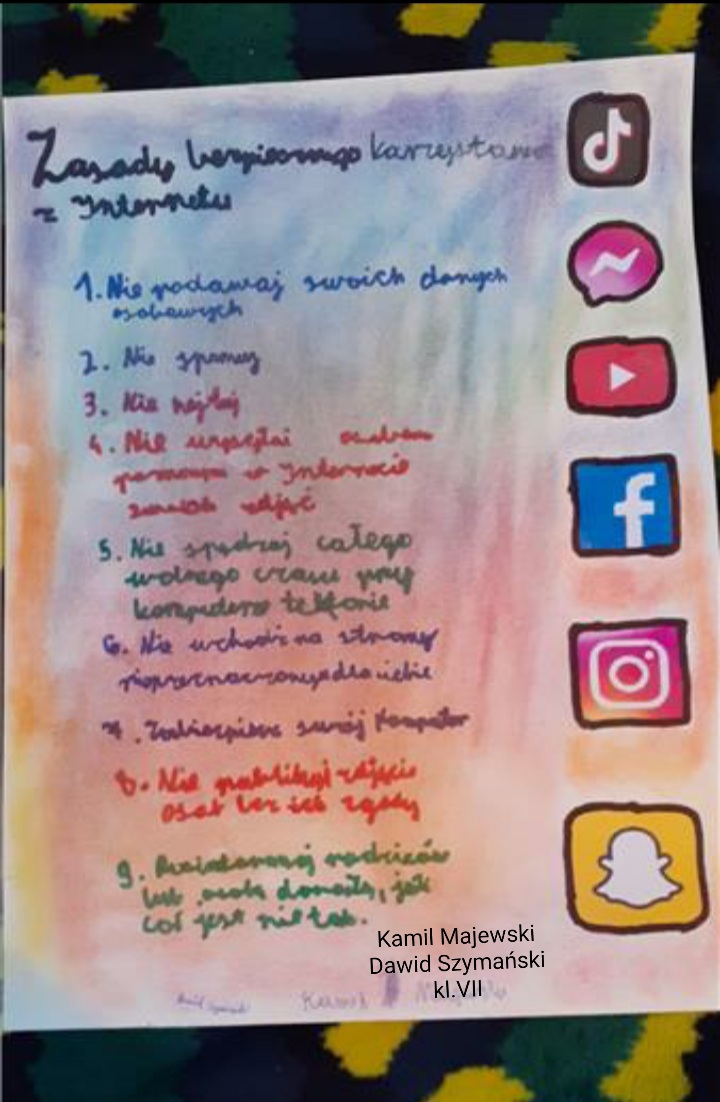 Zasady bezpiecznego karzystania
z Internetu
1. Nie podawaj swoich danych
osobowych
2. Nie spamuj
3. Nie hejtuj
4. Nie wysyłaj osobom
poznanym w Internecie
swoich zdjęć
5. Nie spędzaj całego
wolnego czasu przy
komputerze telefonie
6. Nie wchodź na strony
nieprzeznaczone dla ciebie
7. Zabezpiecz swój komputer
8. Nie publikuj zdjęcie
osób bez ich zgody
9. Poinformuj rodziców
lub osobę dorosłą, jak
coś jest nie tak.
Kamil Majewski
Dawid Szymański
kl.VII
Kamil